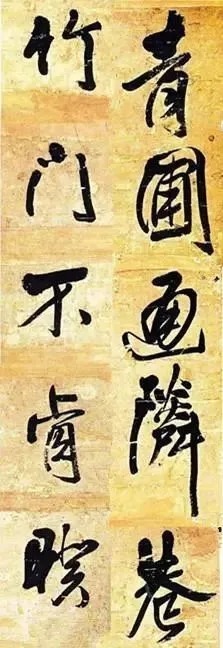 青圃通隣巷
竹門不肯睽